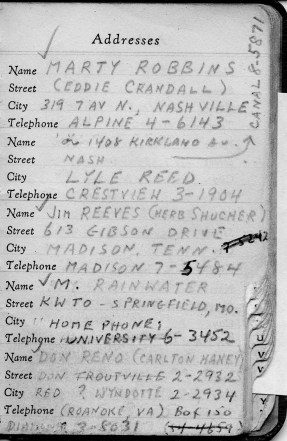 Addresses
Name MARTY ROBBINS
Street (EDDIE CRANDALL)
City 319 7 AV N., NASHVILLE
Telephone ALPINE 4-6143
CANAL 8-5871
Name 1408 KIRKLAND AV.
Street NASH
City LYLE REED
Telephone CRESTVIEW 3-1904
Name JIM REEVES (HERB SHUCHER)
Street 613 GIBSON DRIVE
City MADISON, TENN.
Telephone MADISON 7-5484
Name M. RAINWATER
Street KWTO - SPRINGFIELD, MO.
City "HOME PHONE"
Telephone UNIVERSITY 6-3452
Name DON RENO (CARLTON HANEY)
Street DON TROUTVILLE 2-2932
City RED ? WYNDOTTE 2-2934
Telephone (ROANOKE, VA) BOX 150
3-8031